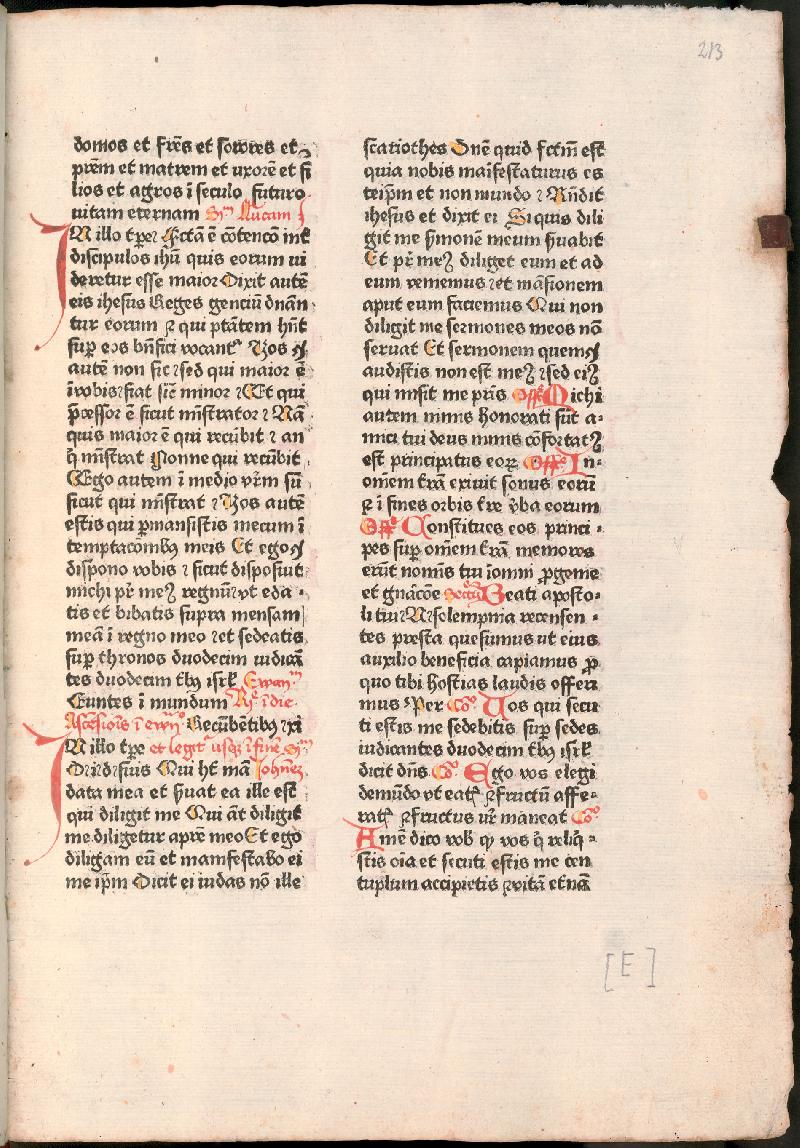 213
domos et fr̄es et sorores et
pr̄em et matrem et uxorē et fi
lios et agros ī seculo futuro
uitam eternam Sm̄ Lucam
IN illo tp̄e Fctā ē cōtencō int̄
discipulos ihū quis eorum ui
deretur esse maior Dixit autē
eis ihesus Reges genciū dnān
tur eorum ⁊ qui ptātem hn̄t
sup̄ eos bn̄fici vocant᷑ Vos
autē non sic ⁊ sed qui maior ē
ī vobis fiat sic̄ minor Et qui
p̄cessor ē sicut mīstrator Nā
quis maior ē qui recūbit an
q̄ mīstrat Nonne qui recūbit
Ego autem ī medio vr̄m sū
sicut qui mīstrat Vos autē
estis qui p̄mansistis mecum ī
temptacōnibꝰ meis Et ego
dispono vobis sicut disposuit
michi pr̄ meꝰ regnū vt eda
tis et bibatis supra mensam
meā ī regno meo et sedeatis
sup̄ thronos duodecim iudicā
tes duodecim tbꝰ isrl̄ Ewan
Euntes ī mundum Rͤ ī die
Ascēsionis ī ewn̄ Recūbentibꝰ xi
IN illo tp̄e et legit᷑ usqꝫ ī finē Sm̄
Dixit dn̄s ihūs Qui ht̄ mā Johnēꝫ
data mea et s̄uat ea ille est
qui diligit me Qui āt diligit
me diligetur a pr̄e meo Et ego
diligam eū et manifestabo ei
me ip̄m Dicit ei iudas nō ille
scariothes Dn̄e quid fctm̄ est
quia nobis māifestaturus es
teip̄m et non mundo Rn̄dit
ihesus et dixit ei Si quis dili
git me s̄monē meum s̄uabit
Et pr̄ meꝰ diliget eum et ad
eum veniemus et māsionem
aput eum faciemus Qui non
diligit me sermones meos nō
seruat Et sermonem quem
audistis non est meꝰ sed eiꝰ
qui misit me pr̄is Off̄ Michi
autem nimis honorati sūt a-
mici tui deus nimis cōfortatꝰ
est principatus eorꝝ Off̄ In
om̄em t̄rā exiuit sonus eorū
⁊ ī fines orbis t̄re v̄ba eorum
Off̄ Constitues eos princi-
pes sup̄ om̄em t̄rā memores
erūt nominis tui ī omni p̄genie
et gn̄acōe Secr̄ Beati aposto-
li tui N solempnia recensen-
tes presta quesumus ut eius
auxilio beneficia capiamus p̄
quo tibi hostias laudis offeri
mus Per Cō Vos qui secu
ti estis me sedebitis sup̄ sedes
iudicantes duodecim tbꝰ isrl̄
dicit dn̄s Cō Ego vos elegi
de mūdo vt eatꝭ ⁊ fructū affe-
ratꝭ ⁊ fructus vr̄ maneat Cō
Amē dico vob̄ qꝫ vos q̄ reliq̄-
stis oīa et secuti estis me cen
tuplum accipietis ⁊ vitā et̄nā
[E]